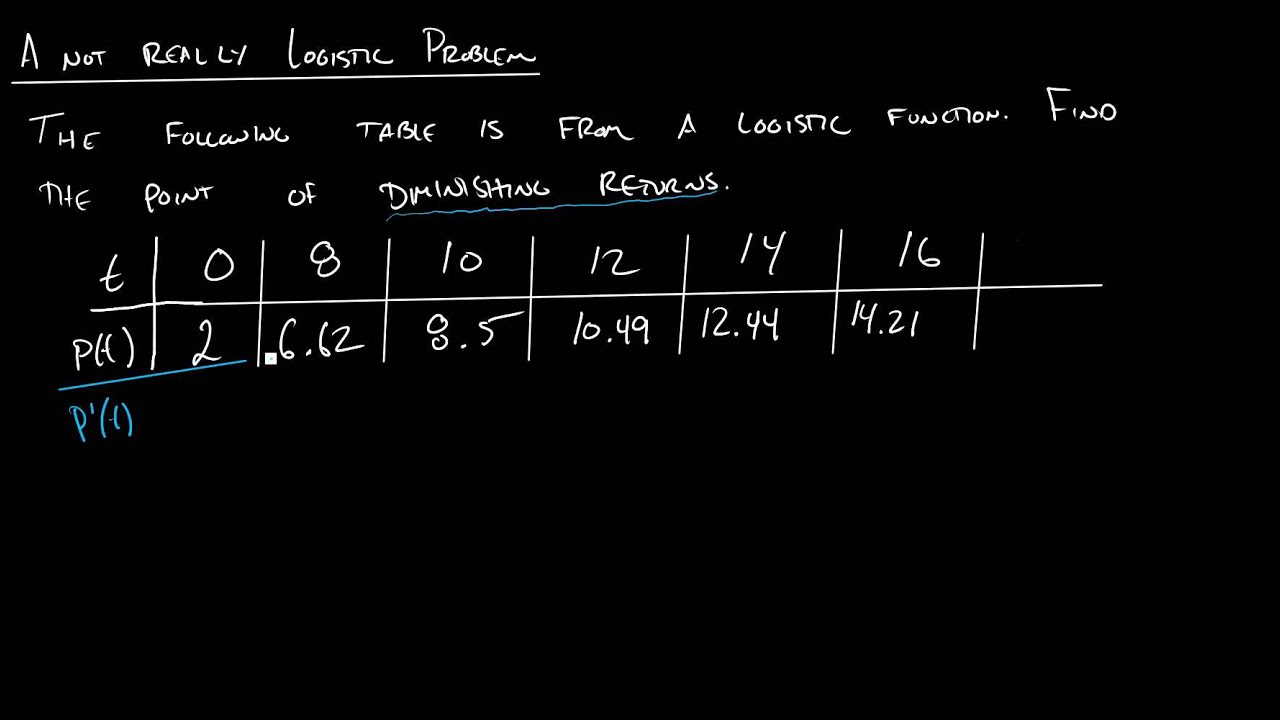 A NOT REALLY LOGISTIC PROBLEM
THE FOLLOWING TABLE IS FROM A LOGISTIC FUNCTION. FIND
THE POINT OF DIMINISHING RETURNS.
t 0 8 10 12 14 16
P(t) 2 6.62 8.5 10.49 12.44 14.21
P'(t)